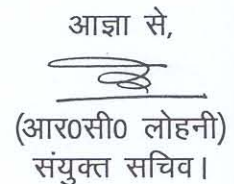 आज्ञा से,
(आर0सी0 लोहनी)
संयुक्त सचिव।